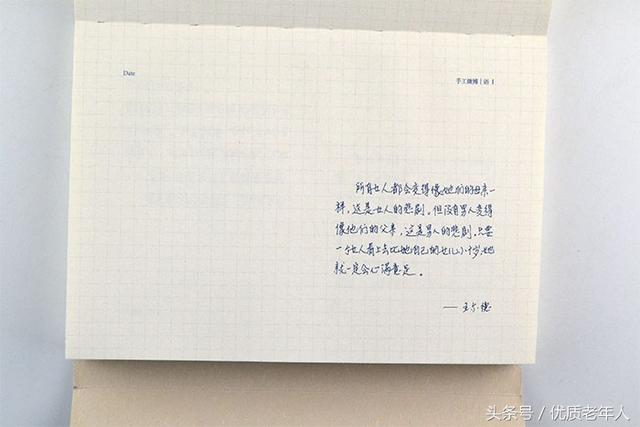 Date
手工微博｜语 1
所有女人都会变得像她们的母亲一
样，这是女人的悲剧。但没有男人变得
像他们的父亲，这是男人的悲剧。只要
一个女人看上去比她自己的女儿小十岁，她
就一定会心满意足。
——王尔德
头条号／优质老年人